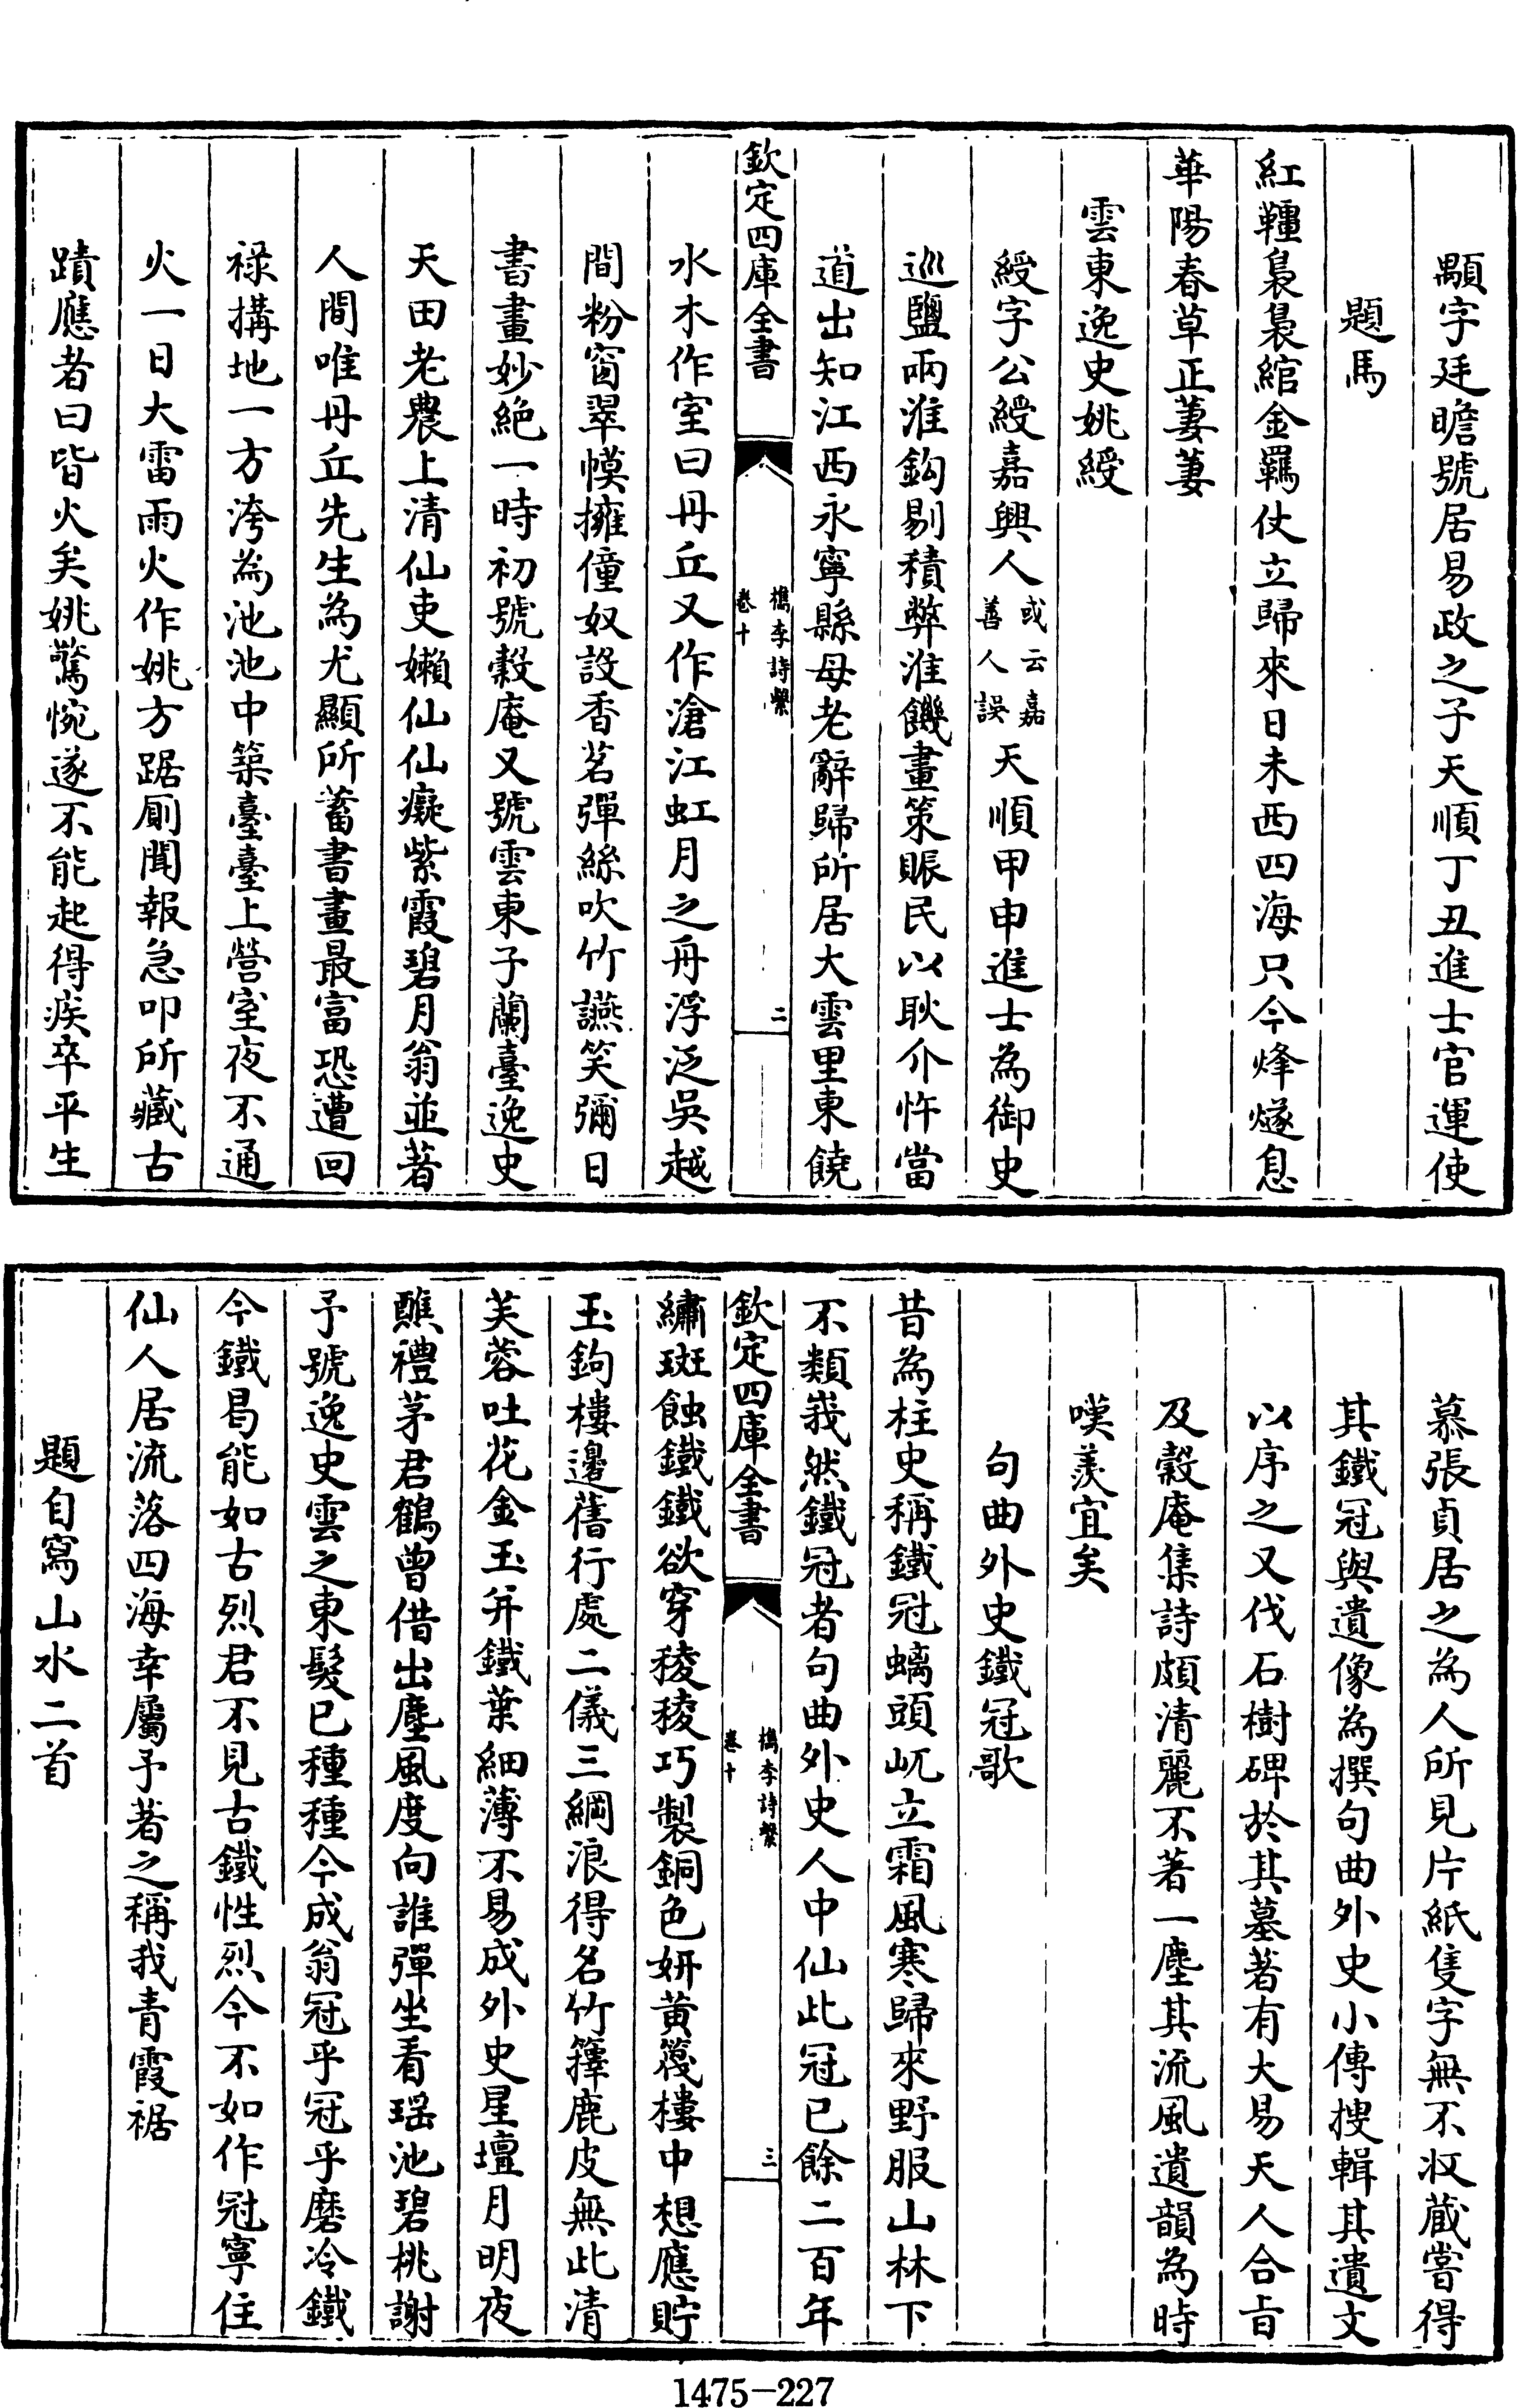 顒字廷瞻號居易政之子天順丁丑進士官運使
題馬
紅韁裊裊綰金羈仗立歸來日未西四海只今烽燧息
華陽春草正萋萋
雲東逸史姚綬
綬字公綬嘉興人或云嘉善人誤天順甲申進士為御史
巡鹽兩淮鈎剔積弊淮饑畫策賑民以耿介忤當
道出知江西永寧縣母老辭歸所居大雲里東饒
欽定四庫全書
檇李詩繫
卷十
二
水木作室曰丹丘又作滄江虹月之舟浮泛吳越
間粉窗翠幙擁僮奴設香茗彈絲吹竹讌笑彌日
書畫妙絶一時初號穀庵又號雲東子蘭臺逸史
天田老農上清仙吏嬾仙仙癡紫霞碧月翁並著
人間唯丹丘先生為尤顯所蓄書畫最富恐遭回
禄搆地一方洿為池池中築臺臺上營室夜不通
火一日大雷雨火作姚方踞厠聞報急叩所藏古
蹟應者曰皆火矣姚驚惋遂不能起得疾卒平生
慕張貞居之為人所見片紙隻字無不收蔵嘗得
其鐵冠與遺像為撰句曲外史小傳搜輯其遺文
以序之又伐石樹碑於其墓著有大易天人合㫖
及穀庵集詩頗清麗不著一塵其流風遺韻為時
嘆羨宜矣
句曲外史鐵冠歌
昔為柱史稱鐵冠螭頭屹立霜風寒歸來野服山林下
不類峩然鐵冠者句曲外史人中仙此冠已餘二百年
欽定四庫全書
檇李詩繫
卷十
三
繡斑蝕鐵鐵欲穿稜稜巧製銅色妍黄篾樓中想應貯
玉鉤樓邊舊行處二儀三綱浪得名竹籜鹿皮無此清
芙蓉吐花金玉幷鐵葉細薄不易成外史星壇月明夜
醮禮茅君鶴曾借出塵風度向誰彈坐看瑶池碧桃謝
予號逸史雲之東髮已種種今成翁冠乎冠乎磨冷鐵
今鐵曷能如古烈君不見古鐵性烈今不如作冠寧住
仙人居流落四海幸屬予著之稱我青霞裾
題自寫山水二首
1475-227